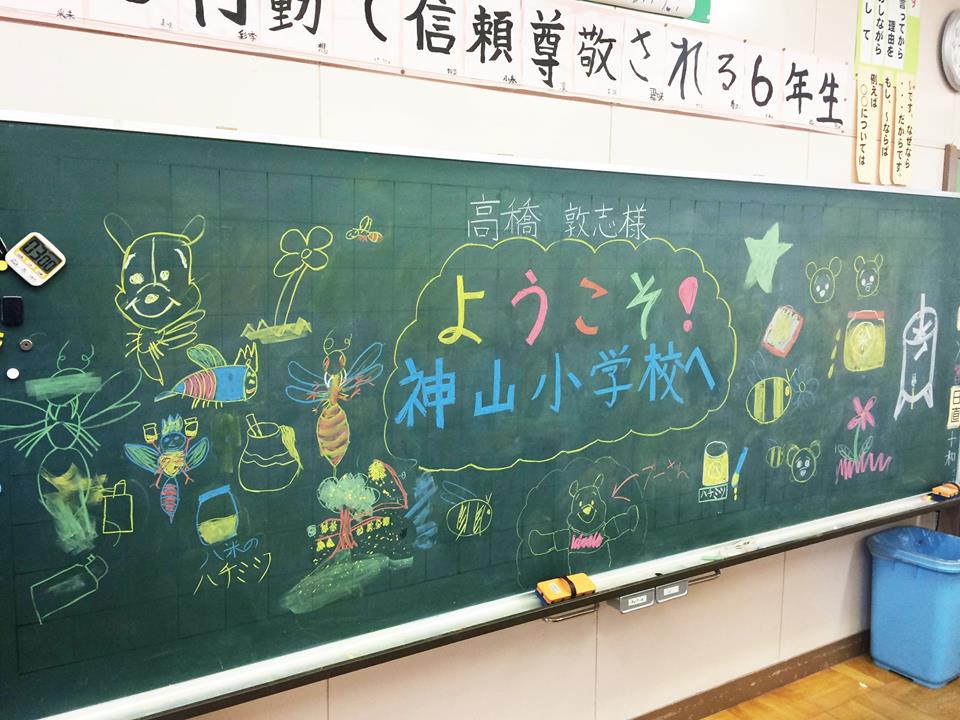 行動で信頼尊敬される6年生
言ってから
理由を
して
～です。なぜなら
・・だからです。
もし、～ならば
例えば
○○については
高橋 敦志様
ようこそ!
神山小学校へ
03:00
八米の
ハチミツ
ハチミツ
プーさん
日直
十和